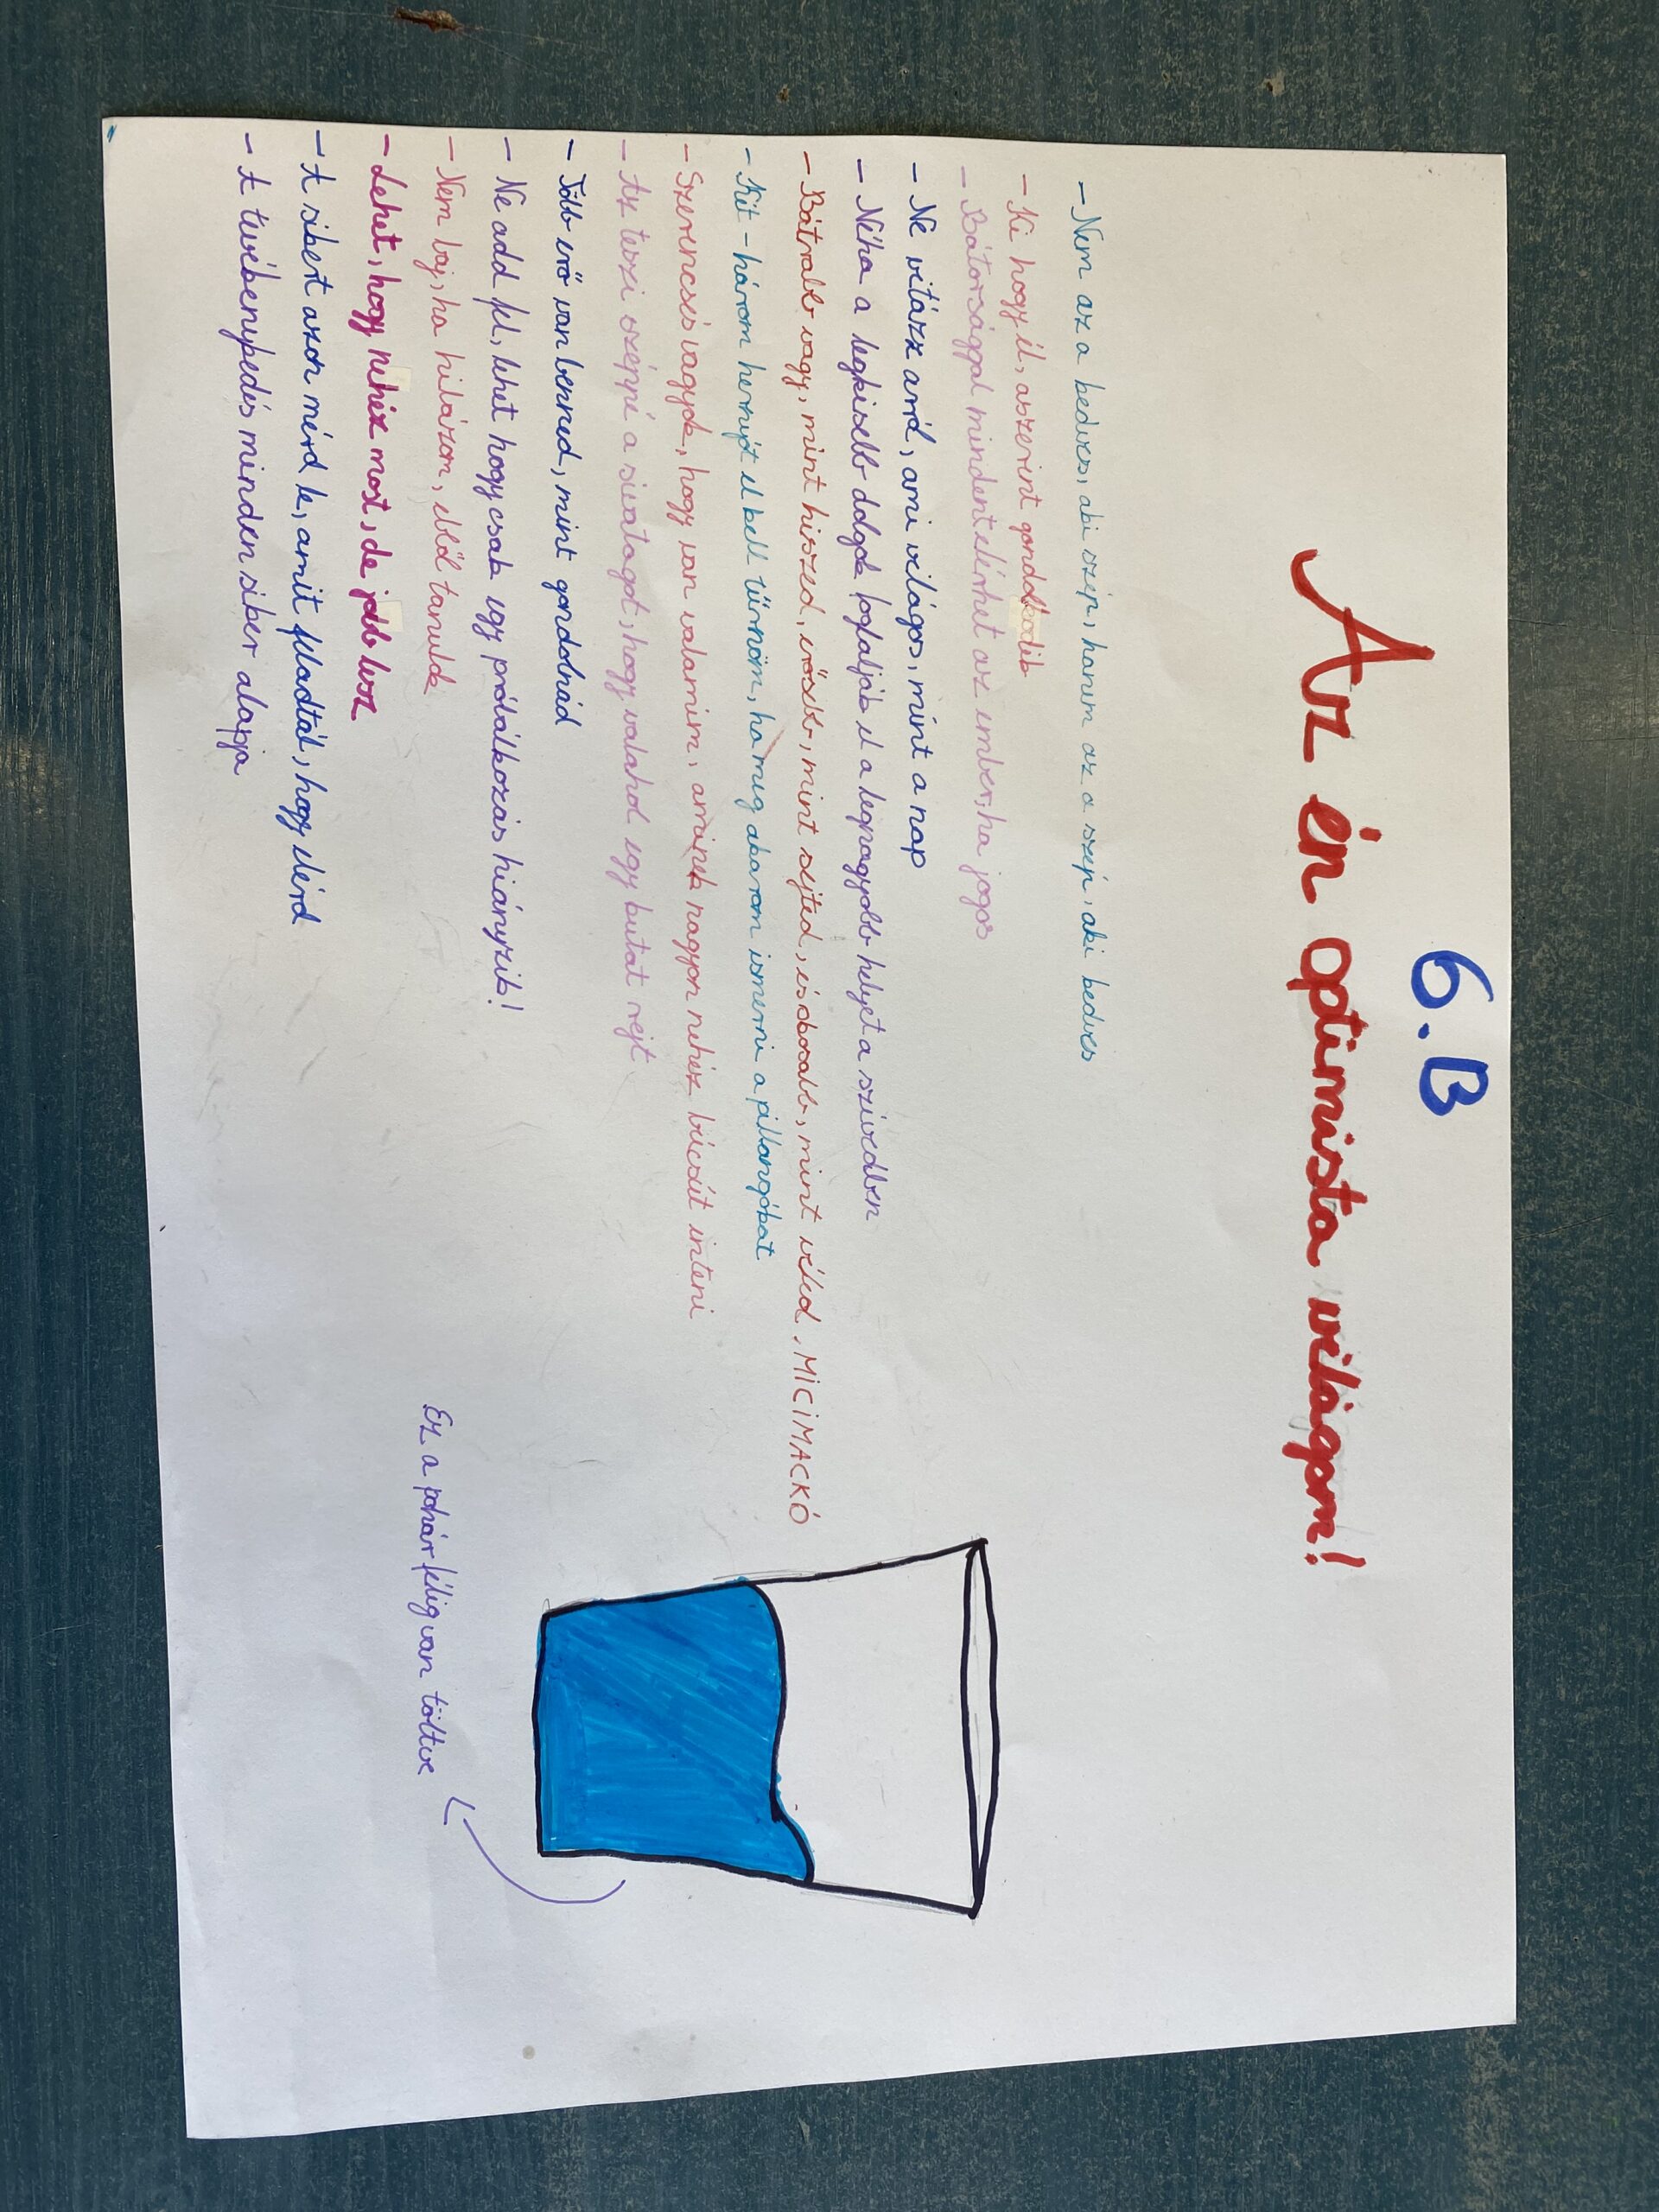 6.B
Az én optimista világom!
- Nem az a kedves, aki szép, hanem az a szép, aki kedves
- Ki hogy él, aszerint gondolkodik
- Bátorsággal mindent elérhet az ember, ha jogos
- Ne vitázz arról, ami világos, mint a nap
- Néha a legkisebb dolgok foglalják el a legnagyobb helyet a szívedben
- Bátrabb vagy, mint hiszed, erősebb, mint sejted, és okosabb, mint véled. MICIMACKÓ
- Két-három hernyót el kell tűrnöm, ha meg akarom ismerni a pillangókat
- Szerencsés vagyok, hogy van valamim, aminek nagyon nehéz búcsút inteni
- Az teszi széppé a sivatagot, hogy valahol egy kutat rejt
- Több erő van benned, mint gondolnád
- Ne add fel, lehet hogy csak egy próbálkozás hiányzik!
- Nem baj, ha hibázom, ebből tanulok
- Lehet, hogy nehéz most, de jobb lesz
- A sikert azon mérd le, amit feladtál, hogy elérd
- A tevékenykedés minden siker alapja
Ez a pohár félig van töltve